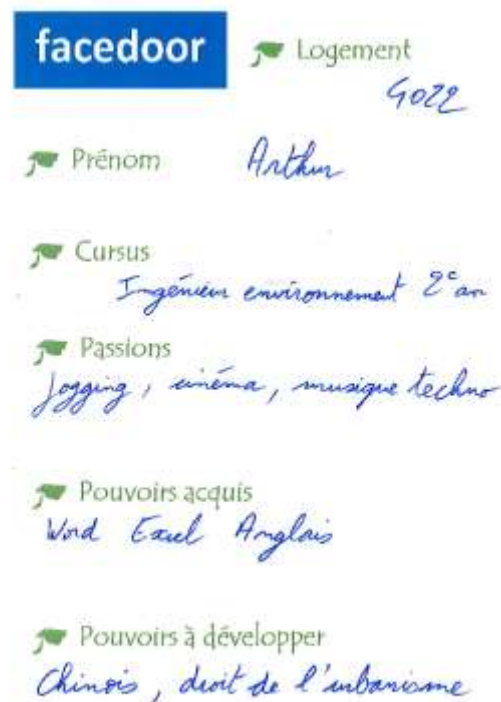 facedoor
Logement
G022
Prénom Arthur
Cursus
Ingénieur environnement 2e an
Passions
Jogging, cinéma, musique techno
Pouvoirs acquis
Word Excel Anglais
Pouvoirs à développer
Chinois, droit de l'urbanisme